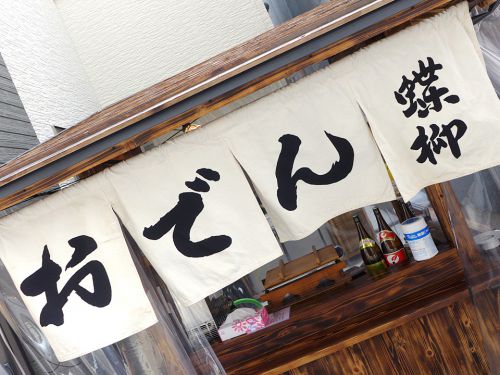 おでん
蝶柳